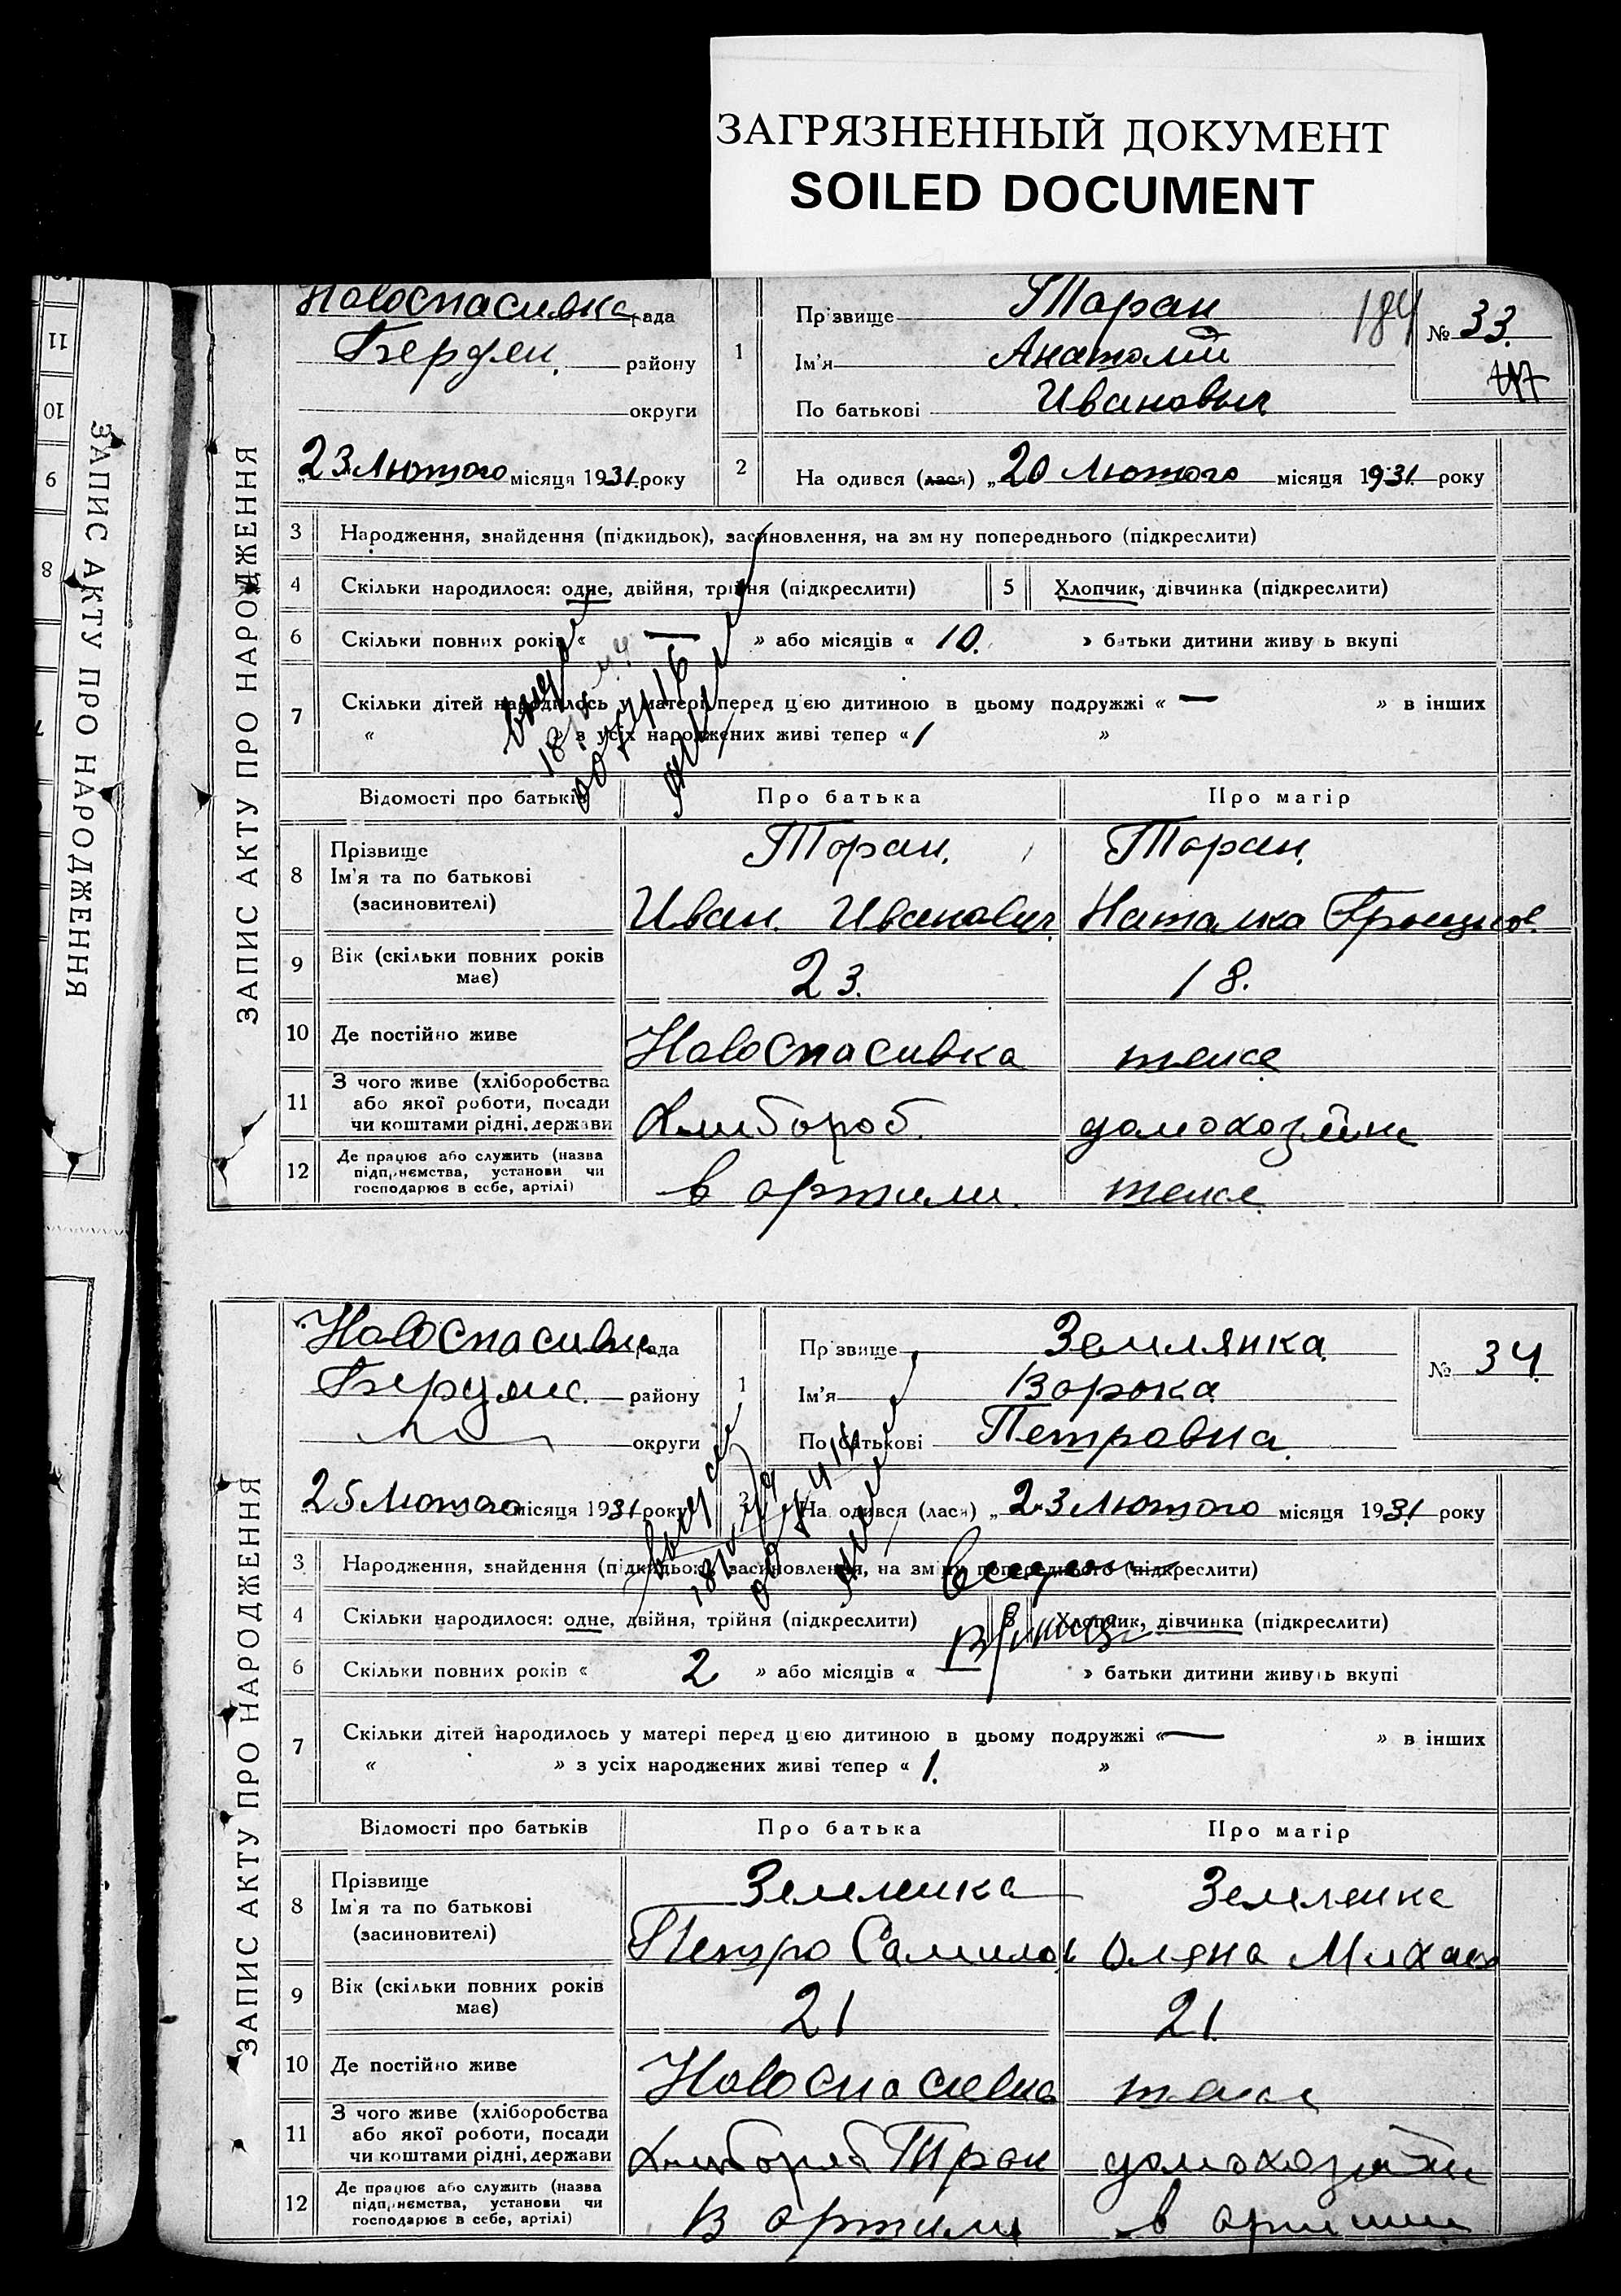 ЗАГРЯЗНЕННЫЙ ДОКУМЕНТ
SOILED DOCUMENT
11
10
9
8
ЗАПИС АКТУ ПРО НАРОДЖЕННЯ
ЗАПИС АКТУ ПРО НАРОДЖЕННЯ
Новоспасивка рада
Бердян. району
округи
1
Прізвище Таран
Ім'я Анатолій
По батькові Иванович
184
№ 33.
23 Лютого місяця 1931 року
2
На одився (лася) „20 Лютого місяця 1931. року
3 Народження, знайдення (підкидьок), засиновлення, на зм ну попереднього (підкреслити)
4 Скільки народилося: одне, двійня, трійня (підкреслити)
5 Хлопчик, дівчинка (підкреслити)
6 Скільки повних років « — » або місяців « 10. » батьки дитини живу ь вкупі
7 Скільки дітей народилось у матері перед цією дитиною в цьому подружжі « — » в інших
« » з усіх народжених живі тепер « 1 »
Відомості про батьків
Про батька
Про матір
8 Прізвище
Ім'я та по батькові
(засиновителі)
Таран.
Иван. Иванович
Таран.
Наталка
9 Вік (скільки повних років
має)
23.
18.
10 Де постійно живе
Новоспасивка
теже
11 З чого живе (хліборобства
або якої роботи, посади
чи коштами рідні, держави
Хлибороб.
домохозяйка
12 Де працює або служить (назва
підприємства, установи чи
господарює в себе, артілі)
в артили.
теже
ЗАПИС АКТУ ПРО НАРОДЖЕННЯ
Новоспасивка рада
Бердянс. району
округи
1
Прізвище Землянка
Ім'я Ворька
По батькові Петровна.
№ 34.
25 Лютого місяця 1931. року
2
На одився (лася) „23 Лютого місяця 1931. року
3 Народження, знайдення (підкидьок), засиновлення, на зміну попереднього (підкреслити)
4 Скільки народилося: одне, двійня, трійня (підкреслити)
5 Хлопчик, дівчинка (підкреслити)
6 Скільки повних років « 2 » або місяців « — » батьки дитини живуть вкупі
7 Скільки дітей народилось у матері перед цією дитиною в цьому подружжі « — » в інших
« » з усіх народжених живі тепер « 1. »
Відомості про батьків
Про батька
Про матір
8 Прізвище
Ім'я та по батькові
(засиновителі)
Землянка
Петро Самилов
Землянка
Оляна Михаил
9 Вік (скільки повних років
має)
21
21.
10 Де постійно живе
Новоспасивка
теже
11 З чого живе (хліборобства
або якої роботи, посади
чи коштами рідні, держави
Хлибороб
домохозяйка
12 Де працює або служить (назва
підприємства, установи чи
господарює в себе, артілі)
В артили
в артили